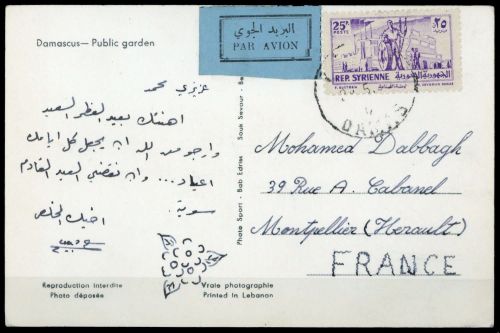 Damascus — Public garden
البريد الجوي
PAR AVION
25P
POSTES
٢٥
REP. SYRIENNE
الجمهورية السورية
DAMAS
عزيزي محمد
اهنئك بعيد الفطر السعيد
وارجو من الله ان يجعل كل ايامك
اعياد... وان نقضي العيد القادم
سوية
اخيك المخلص
Photo Sport - Bab Edriss - Souk Seyour - Be
Mohamed Dabbagh
39 Rue A. Cabanel
Montpellier (Herault)
FRANCE
Reproduction Interdite
Photo déposée
Vraie photographie
Printed in Lebanon